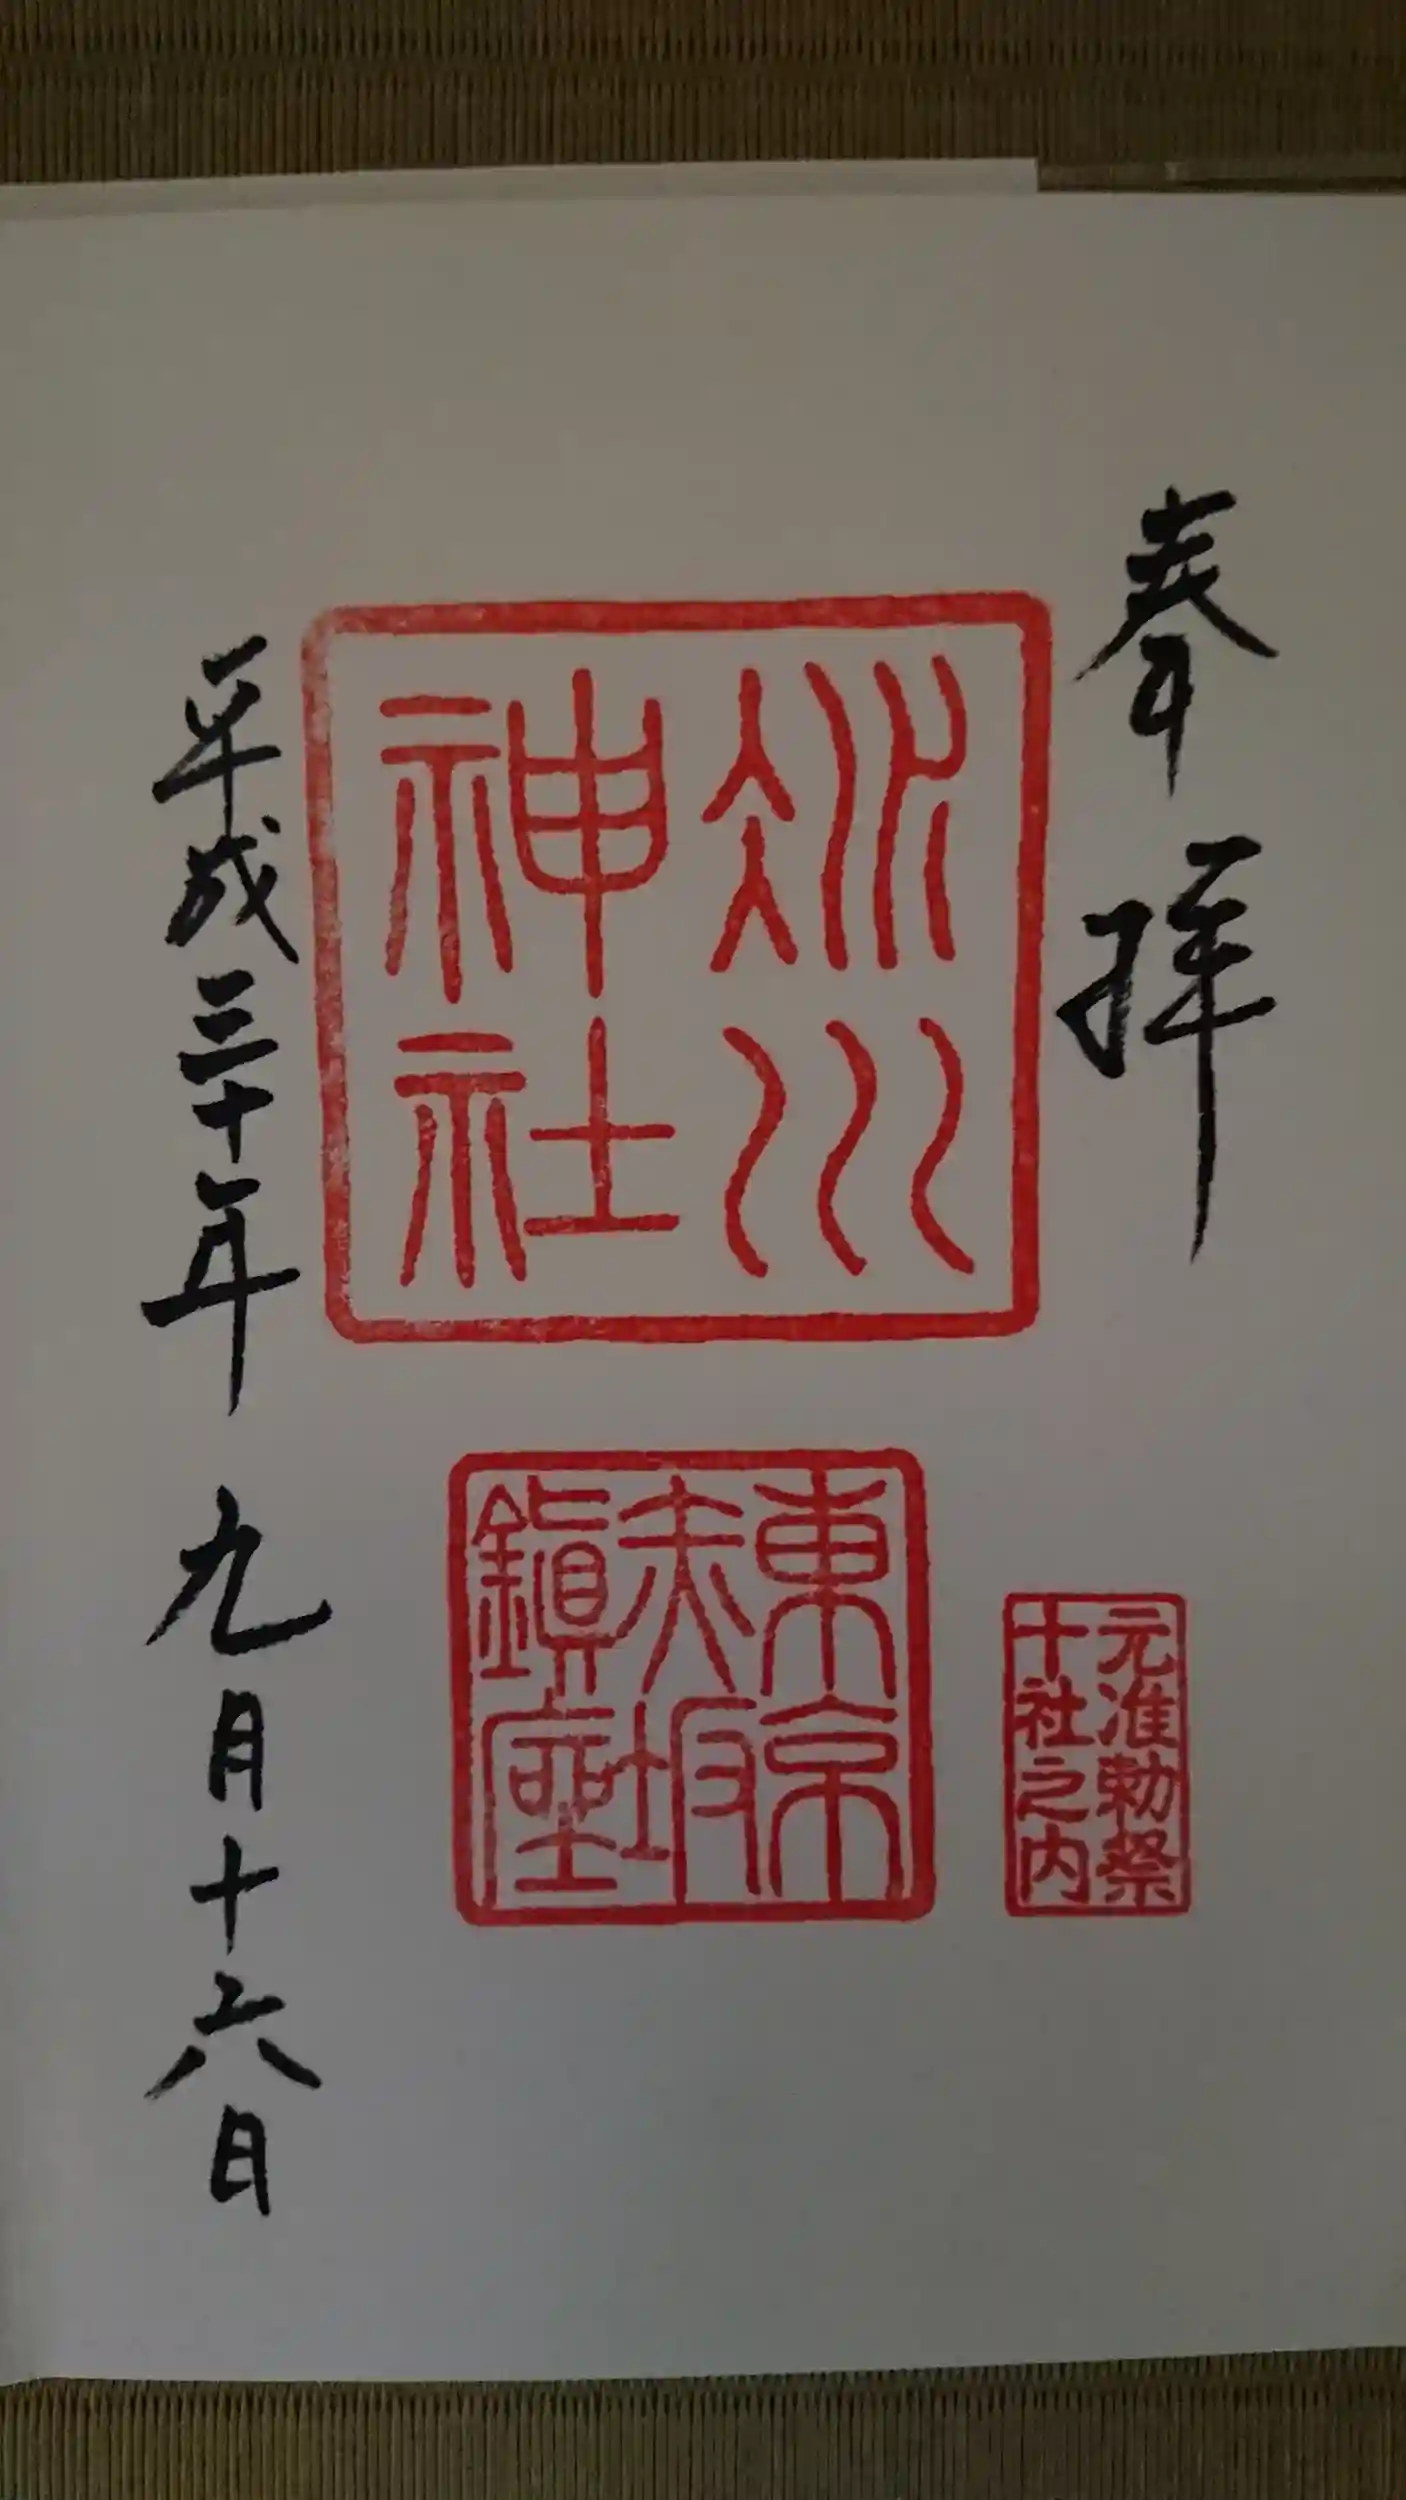 奉拝
氷川
神社
元准勅祭
十社之内
東京
赤坂
鎮座
平成三十年九月十六日